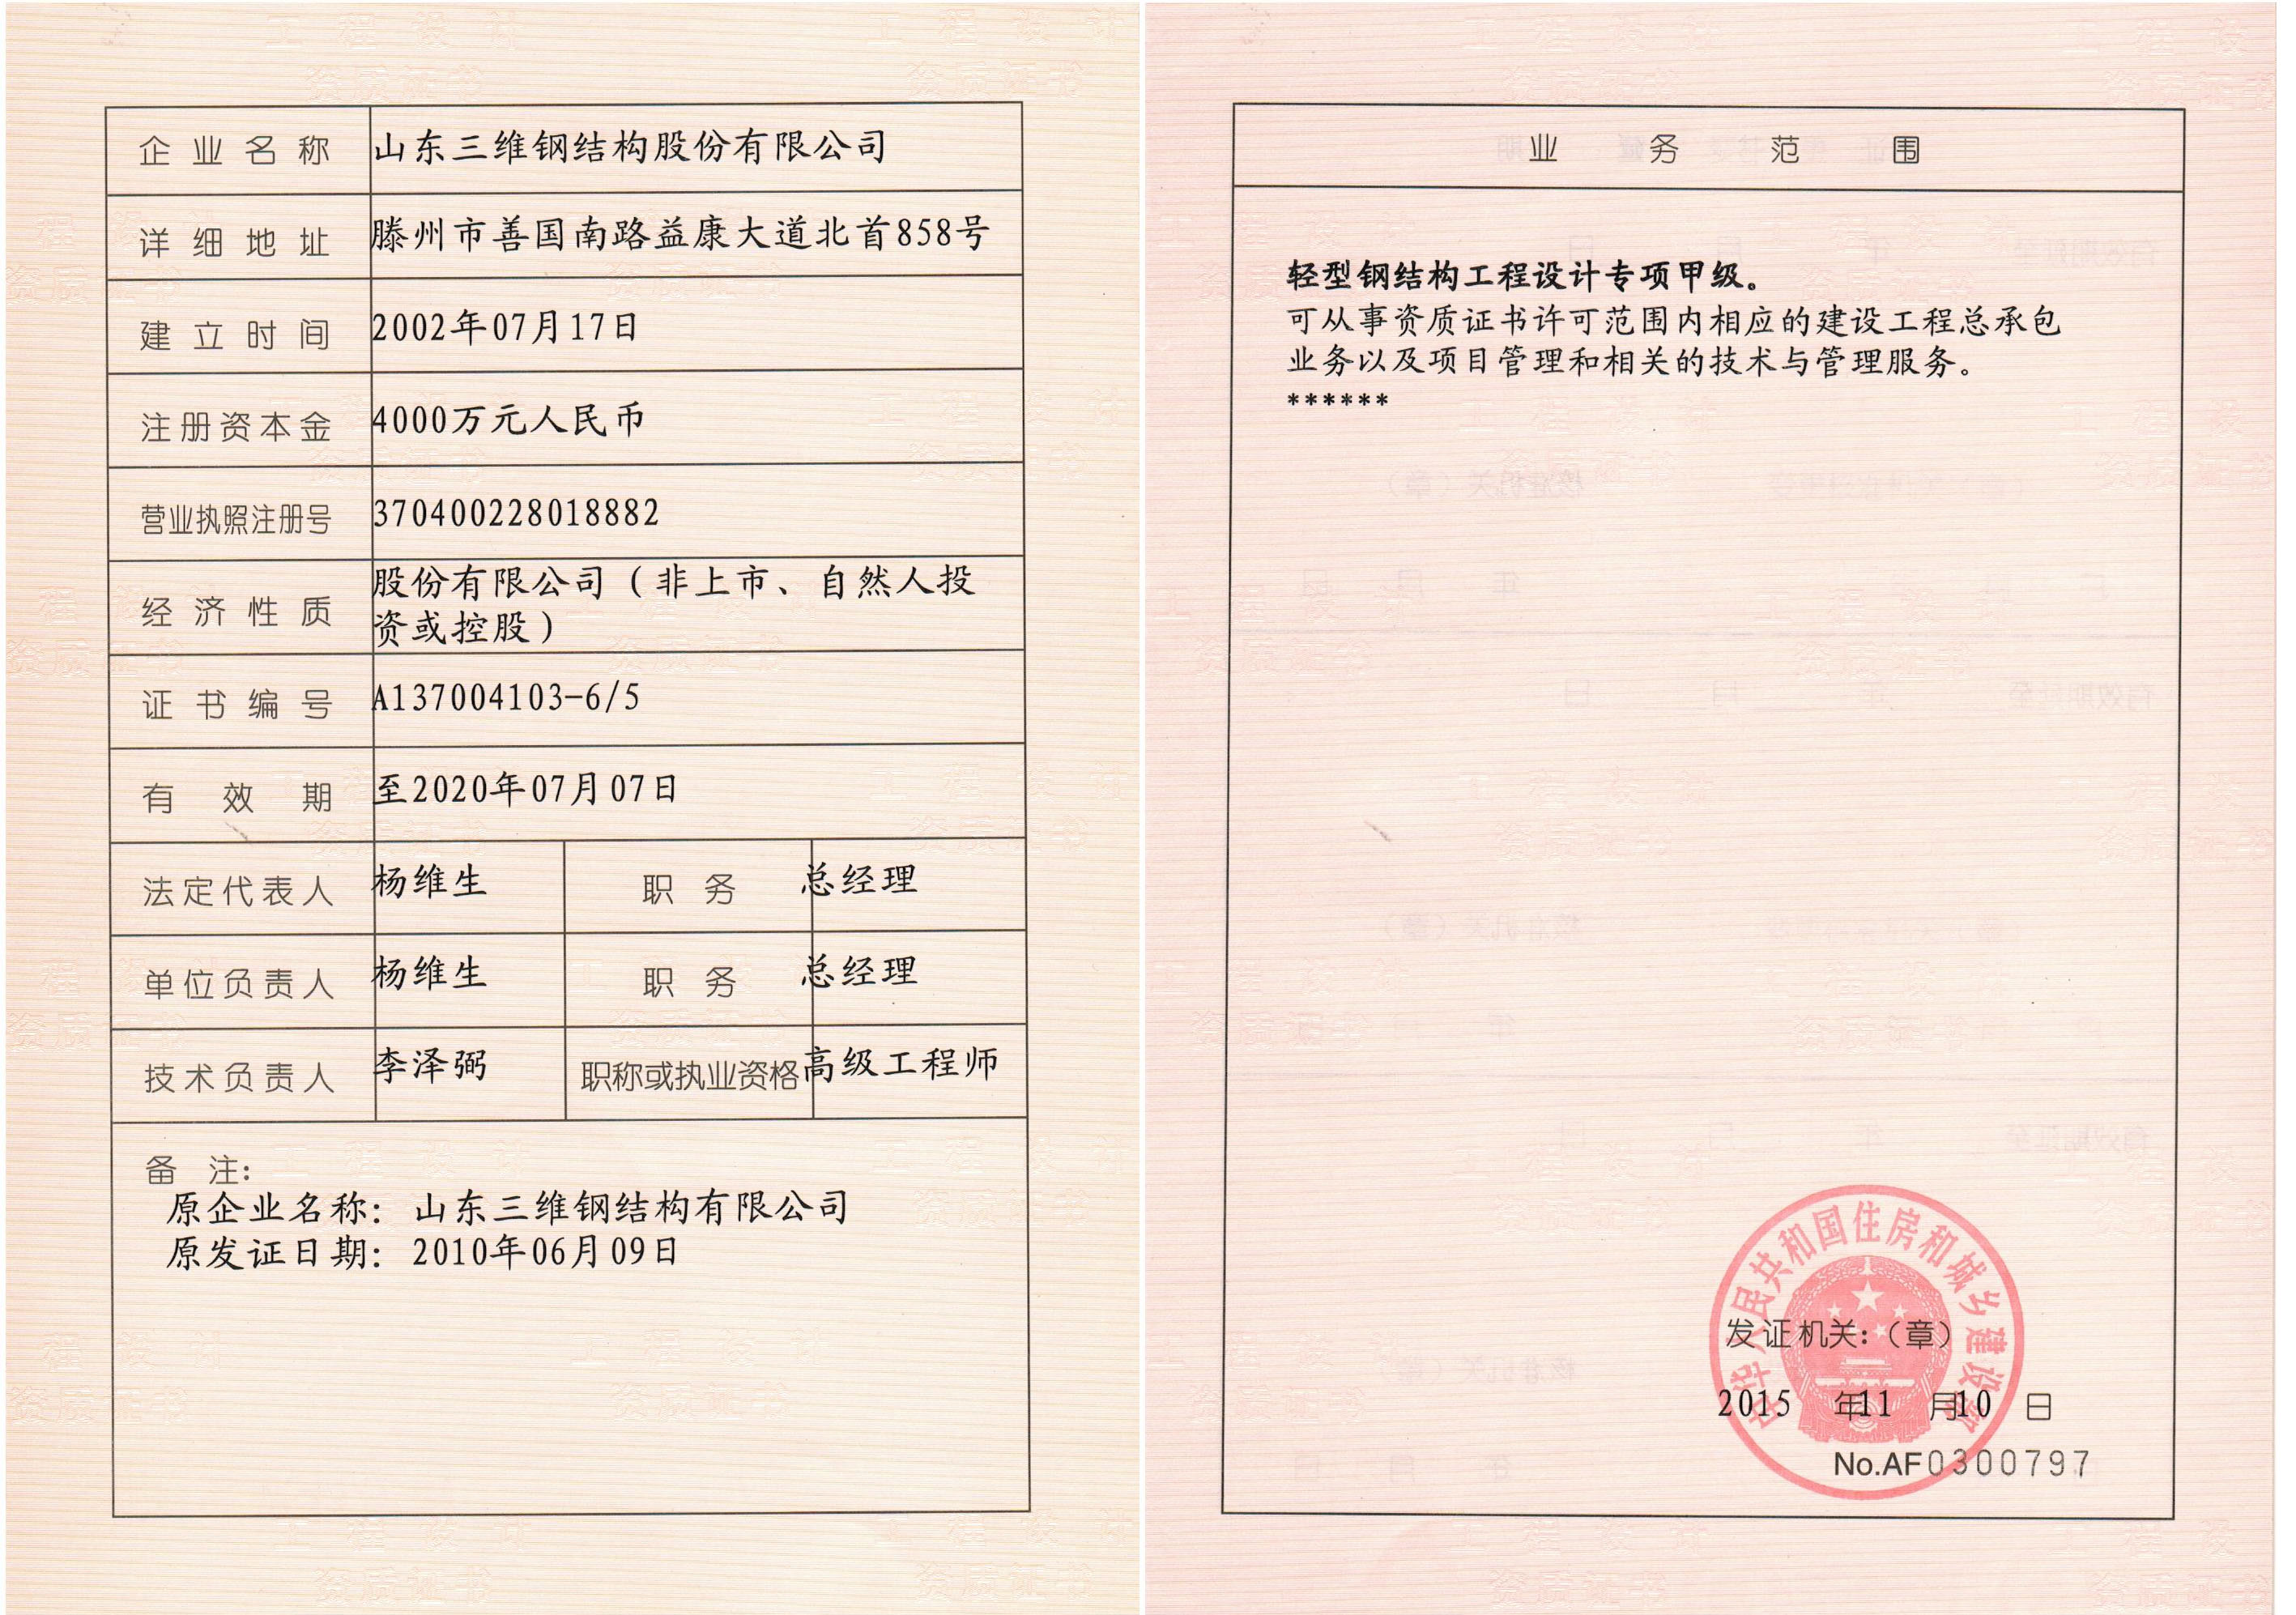 企业名称 山东三维钢结构股份有限公司
详细地址 滕州市善国南路益康大道北首858号
建立时间 2002年07月17日
注册资本金 4000万元人民币
营业执照注册号 370400228018882
经济性质 股份有限公司（非上市、自然人投
资或控股）
证书编号 A137004103-6/5
有效期 至2020年07月07日
法定代表人 杨维生 职务 总经理
单位负责人 杨维生 职务 总经理
技术负责人 李泽弼 职称或执业资格 高级工程师
备 注：
原企业名称： 山东三维钢结构有限公司
原发证日期： 2010年06月09日
业务范围
轻型钢结构工程设计专项甲级。
可从事资质证书许可范围内相应的建设工程总承包
业务以及项目管理和相关的技术与管理服务。
******
中华人民共和国住房和城乡建设部
发证机关：（章）
2015 年11 月10 日
No.AF0300797
工程设计
资质证书